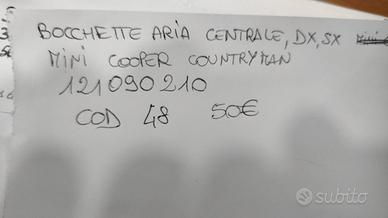 BOCCHETTE ARIA CENTRALE, DX, SX
MINI COOPER COUNTRYMAN
121090210
COD 48 50€
subito